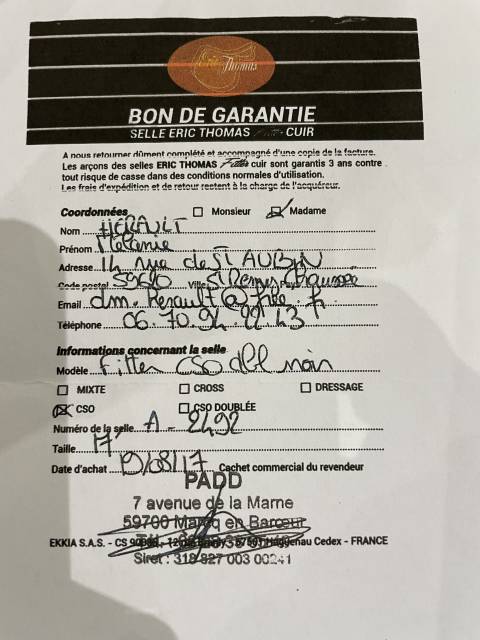 Eric Thomas
BON DE GARANTIE
SELLE ERIC THOMAS Fitter CUIR
A nous retourner dûment complété et accompagné d'une copie de la facture.
Les arçons des selles ERIC THOMAS Fitter cuir sont garantis 3 ans contre
tout risque de casse dans des conditions normales d'utilisation.
Les frais d'expédition et de retour restent à la charge de l'acquéreur.
Coordonnées Monsieur Madame
Nom HERAULT
Prénom Mélanie
Adresse 14 rue de St AUBIN
Code postal 59620 Ville St Remy Chaussée Pays
Email dm.herault@free.fr
Téléphone 06.70.94.22.43
Informations concernant la selle
Modèle Fitter CSO dbl noir
MIXTE CROSS DRESSAGE
CSO CSO DOUBLÉE
Numéro de la selle A-2492
Taille 17"
Date d'achat 19/08/17 Cachet commercial du revendeur
PADD
7 avenue de la Marne
59700 Marcq en Barœul
EKKIA S.A.S. - CS Haguenau Cedex - FRANCE
Siret : 318 827 003 00241